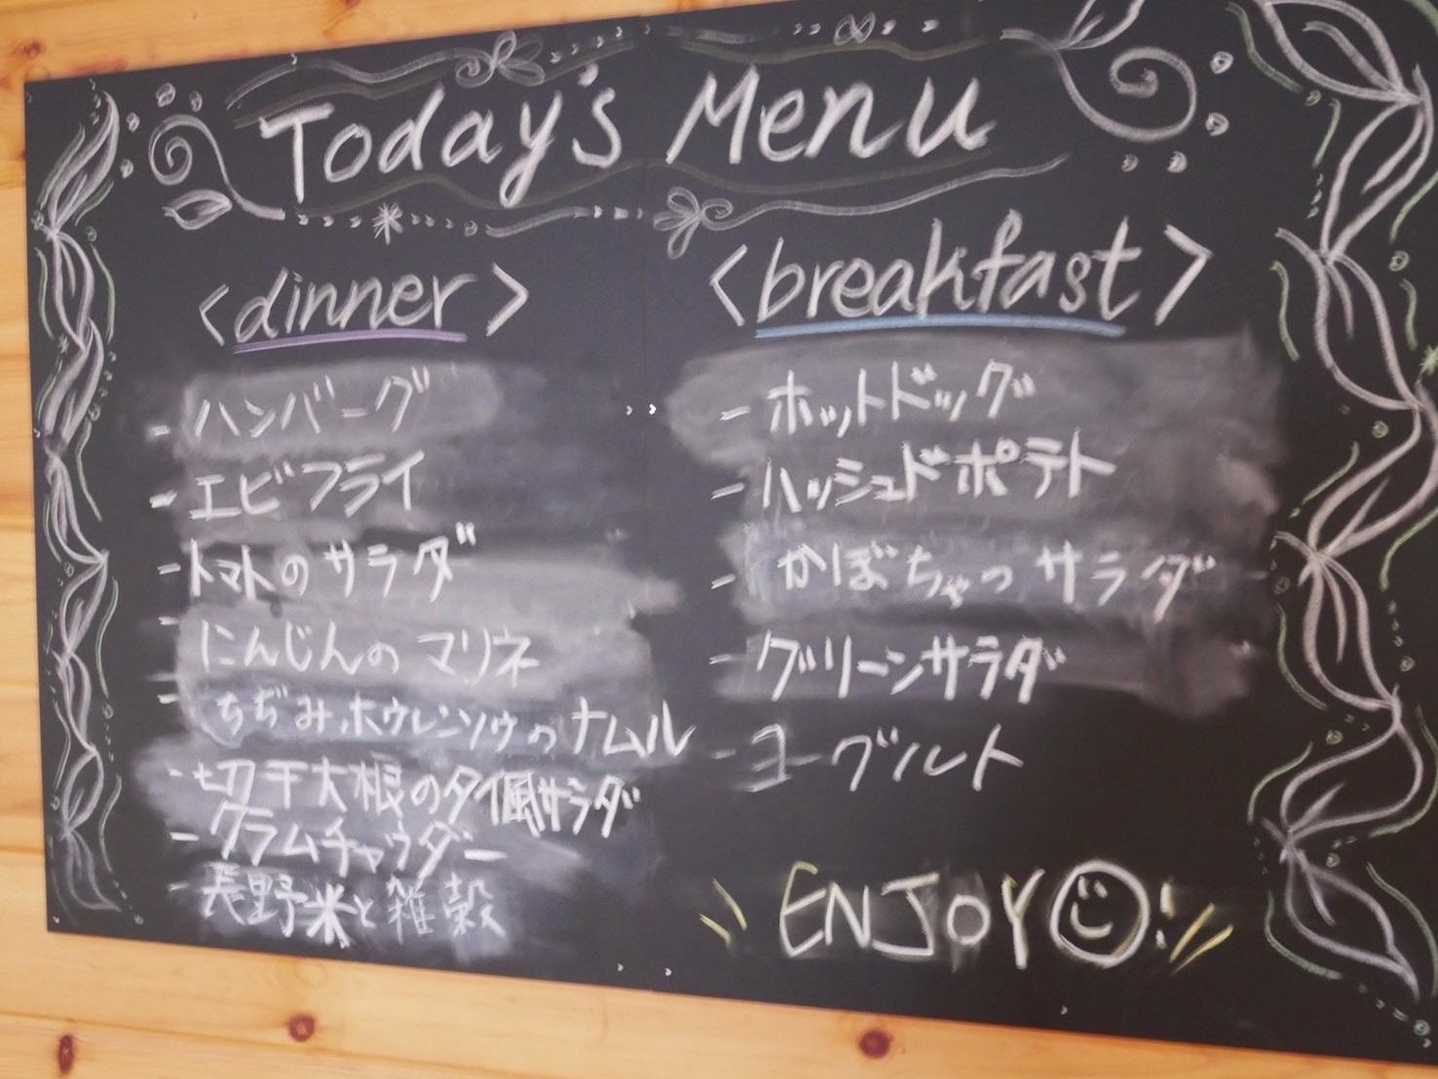 Today's Menu
<dinner>
- ハンバーグ
- エビフライ
- トマトのサラダ
- にんじんのマリネ
- ちぢみ、ホウレンソウのナムル
- 切干大根のタイ風サラダ
- クラムチャウダー
- 長野米と雑穀
<breakfast>
- ホットドッグ
- ハッシュドポテト
- かぼちゃのサラダ
- グリーンサラダ
- ヨーグルト
ENJOY☺!